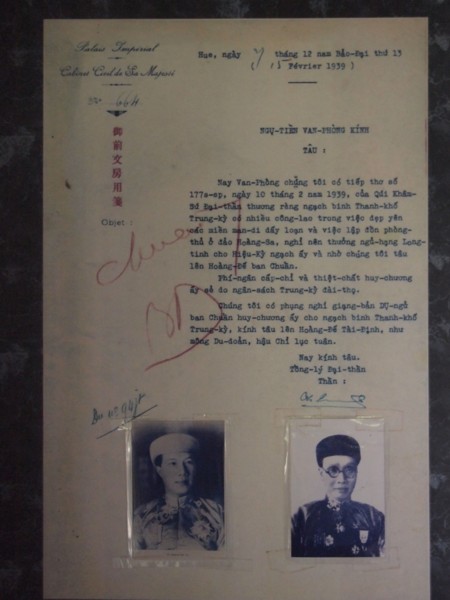 Palais Impérial
Cabinet Civil de Sa Majesté
No 66H.
御前文房用箋
Objet :
Hue, ngày 7 tháng 12 nam Bảo-Đại thứ 13
( 15 Février 1939 )
NGỰ-TIỀN VAN-PHÒNG KÍNH
TÂU :
Nay Van-Phòng chúng tôi có tiếp thơ số
177a-sp, ngày 10 tháng 2 năm 1939, của Qúi Khâm-
Sứ Đại-thần thương rằng ngạch binh Thanh-khố
Trung-kỳ có nhiều công-lao trong việc dẹp yên
các miền man-di dấy loạn và việc lập đồn phòng-
thủ ở đảo Hoàng-Sa, nghỉ nên thưởng ngũ-hạng Long-
tinh cho Hiệu-Kỳ ngạch ấy và nhờ chúng tôi tâu
lên Hoàng-Đế ban Chuẩn.
Phí-ngân cấp-chỉ và thiệt-chất huy-chương
ấy sẻ do ngân-sách Trung-kỳ đài-thọ.
Chúng tôi có phụng nghỉ giạng-bản DỤ-ngủ
ban Chuẩn huy-chương ấy cho ngạch binh Thanh-khố
Trung-kỳ, kính tâu lên Hoàng-Đế Tài-Định, như
mông Du-doản, hậu Chỉ lục tuân.
Nay kính tâu.
Tổng-lý Đại-thần
Thần :
chuẩn
BĐ